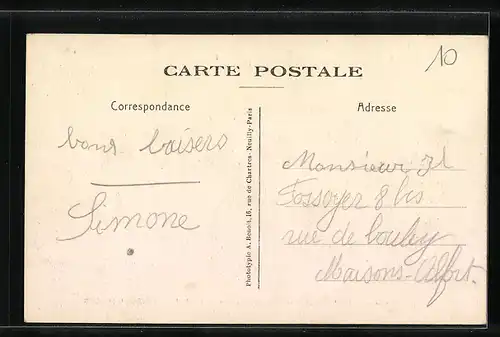 10
CARTE POSTALE
Correspondance
Adresse
bons baisers
Simone
Phototypie A. Benoit, 18, rue de Chartres-Neuilly-Paris
Monsieur
Fossoyer 8 bis
rue de
Maisons-Alfort.